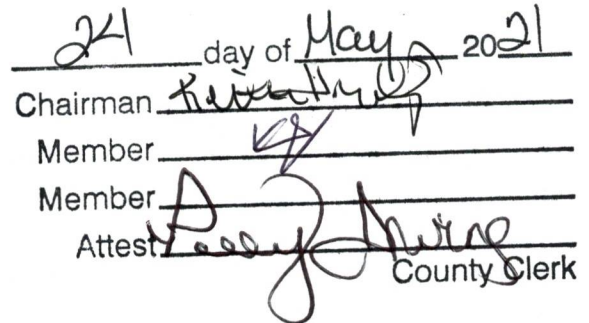 24 day of May 2021
Chairman
Member
Member
Attest
County Clerk